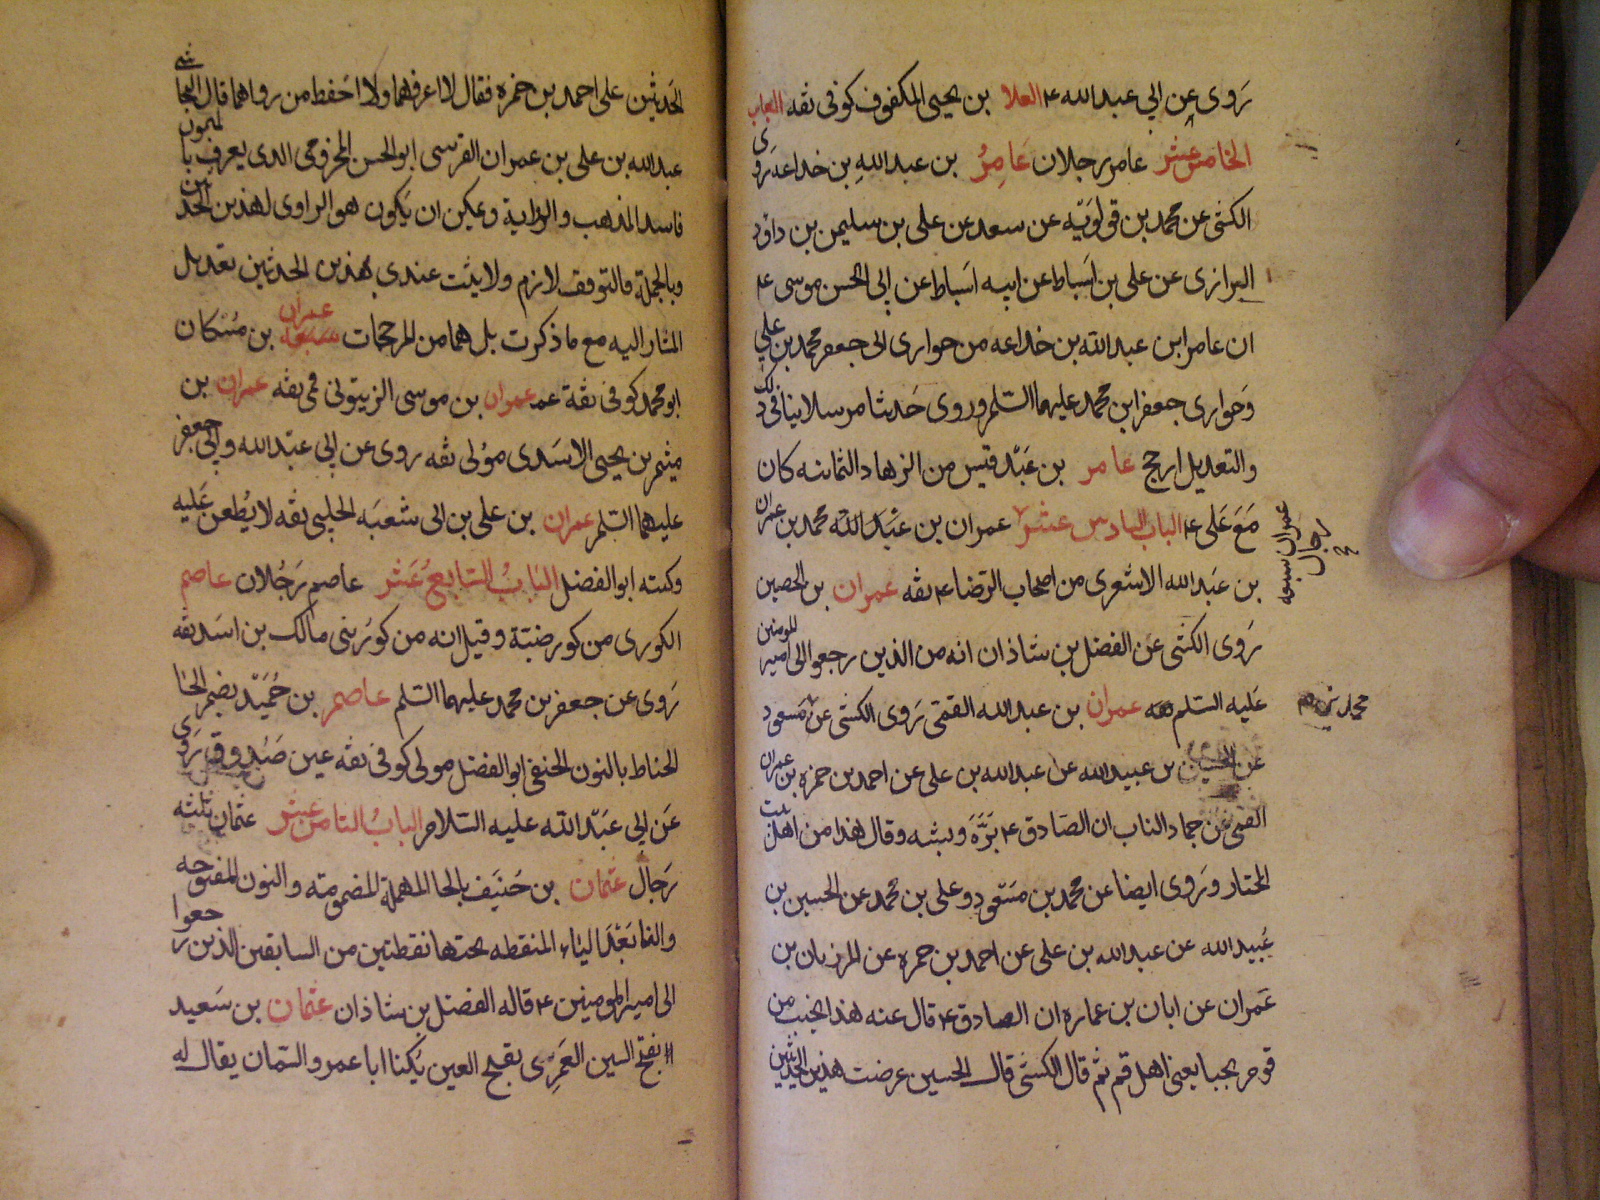 رَوى عن ابي عبد الله ع العلا بن يحيى المكفوف كوفى ثقه الباب
الخامس عشر عامر رجلان عَامِرُ بن عبد اللهِ بن خداعه رَوى
الكشى عن محمد بن قولَوَيّه عن سعد عن على بن سليمن بن داود
الرازى عن على بن اَسباط عن ابيه اَسباط عن ابى الحسن موسى ع
ان عامر ابن عبد الله بن خداعه من حوارى ابى جعفر محمد بن علي
وَحوارى جعفر ابن محمد عليهما السّلم وروى حَديثا مرسلا ينافى ذلك
والتعديل ارجح عامر بن عَبْد قيس من الزهاد الثمانيه كان
مَعَ عَلى ع الباب السادس عشر عمران بن عَبْد الله محمد بن عمران
بن عَبد الله الاشعرى من اصحاب الرّضا ع ثقه عمران بن الحصين
رَوى الكشّى عَن الفضل بن شاذان انه من الذين رجعوا الى امير المومنين
عَليه السّلم عمران بن عبد الله القمّى رَوى الكشّى عن مَسعود
عن الحسين بن عبيد الله عن عبد الله بن على عن احمد بن حمزه بن عمران
القمى عن حماد الناب ان الصَادق ع بَرَّهُ وبشه وقال هذا من اهل بيت
المختار ورَوى ايضا عن محمد بن مَسعود وعلى بن محمد عن الحسين بن
عُبيد الله عن عبد الله بن على عن احمد بن حمزه عن المرزبان بن
عَمران عن ابان بن عماره ان الصادق ع قال عنه هذا نجيب من
قوم نجبا يعنى اهل قم ثم قال الكشى قال الحسين عرضت هذين الحديثين
عمران سبعه
رجال
محمد بن
الحَديثين على احمد بن حمزه فقال لا اعرفهما ولا احَفظ من رواهما قال النجاشى
عبد الله بن على بن عمران القرشى ابو الحسن المخزومى الذى يعرف بالميمون
فاسد المذهب والرواية ويمكن ان يَكون هو الراوى لهذين الحديثين
وبالجملة فالتوقف لازم ولا يثبت عندى بهذين الحديثين تعديل
المشار اليه مع ما ذكرت بل هما من المرجحات عمران بن مُسْكان
ابو محمد كوفى ثقة عمران بن موسى الزيتونى قمى ثقه عمران بن
ميثم بن يحيى الاسَدى مولى ثقه روى عن ابى عبد الله وابى جعفر
عليهما السّلم عمران بن على بن ابى شعبَه الحلبى ثقه لا يُطعن عَليه
وكنيته ابو الفضل البَابُ السّابعُ عَشر عاصم رَجُلان عاصم
الكورى من كور ضبّة وقيل انه من كورَ بنى مالك بن اسَد ثقه
رَوى عن جعفر بن محمد عليهما السّلم عاصم بن حُمَيْد بضم الحا
الحناط بالنون الحنفى ابو الفضل مولى كوفى ثقه عين صَدوق رَوى
عَن ابى عَبْد الله عليه السّلام البابُ الثامن عشر عثمان ثلثه
رَجال عثمان بن حَنيَف بالحا المهملة المضمومة والنون المفتوحه
والفا بَعْدَ الياء المنقطه تحتها نقطتين من السابقين الذين رجعوا
الى امير المومنين ع قاله الفضل بن شاذان عثمان بن سَعيد
بفتح السين العَمرى بفتح العين يُكنا ابا عمرو السّمان يقال له